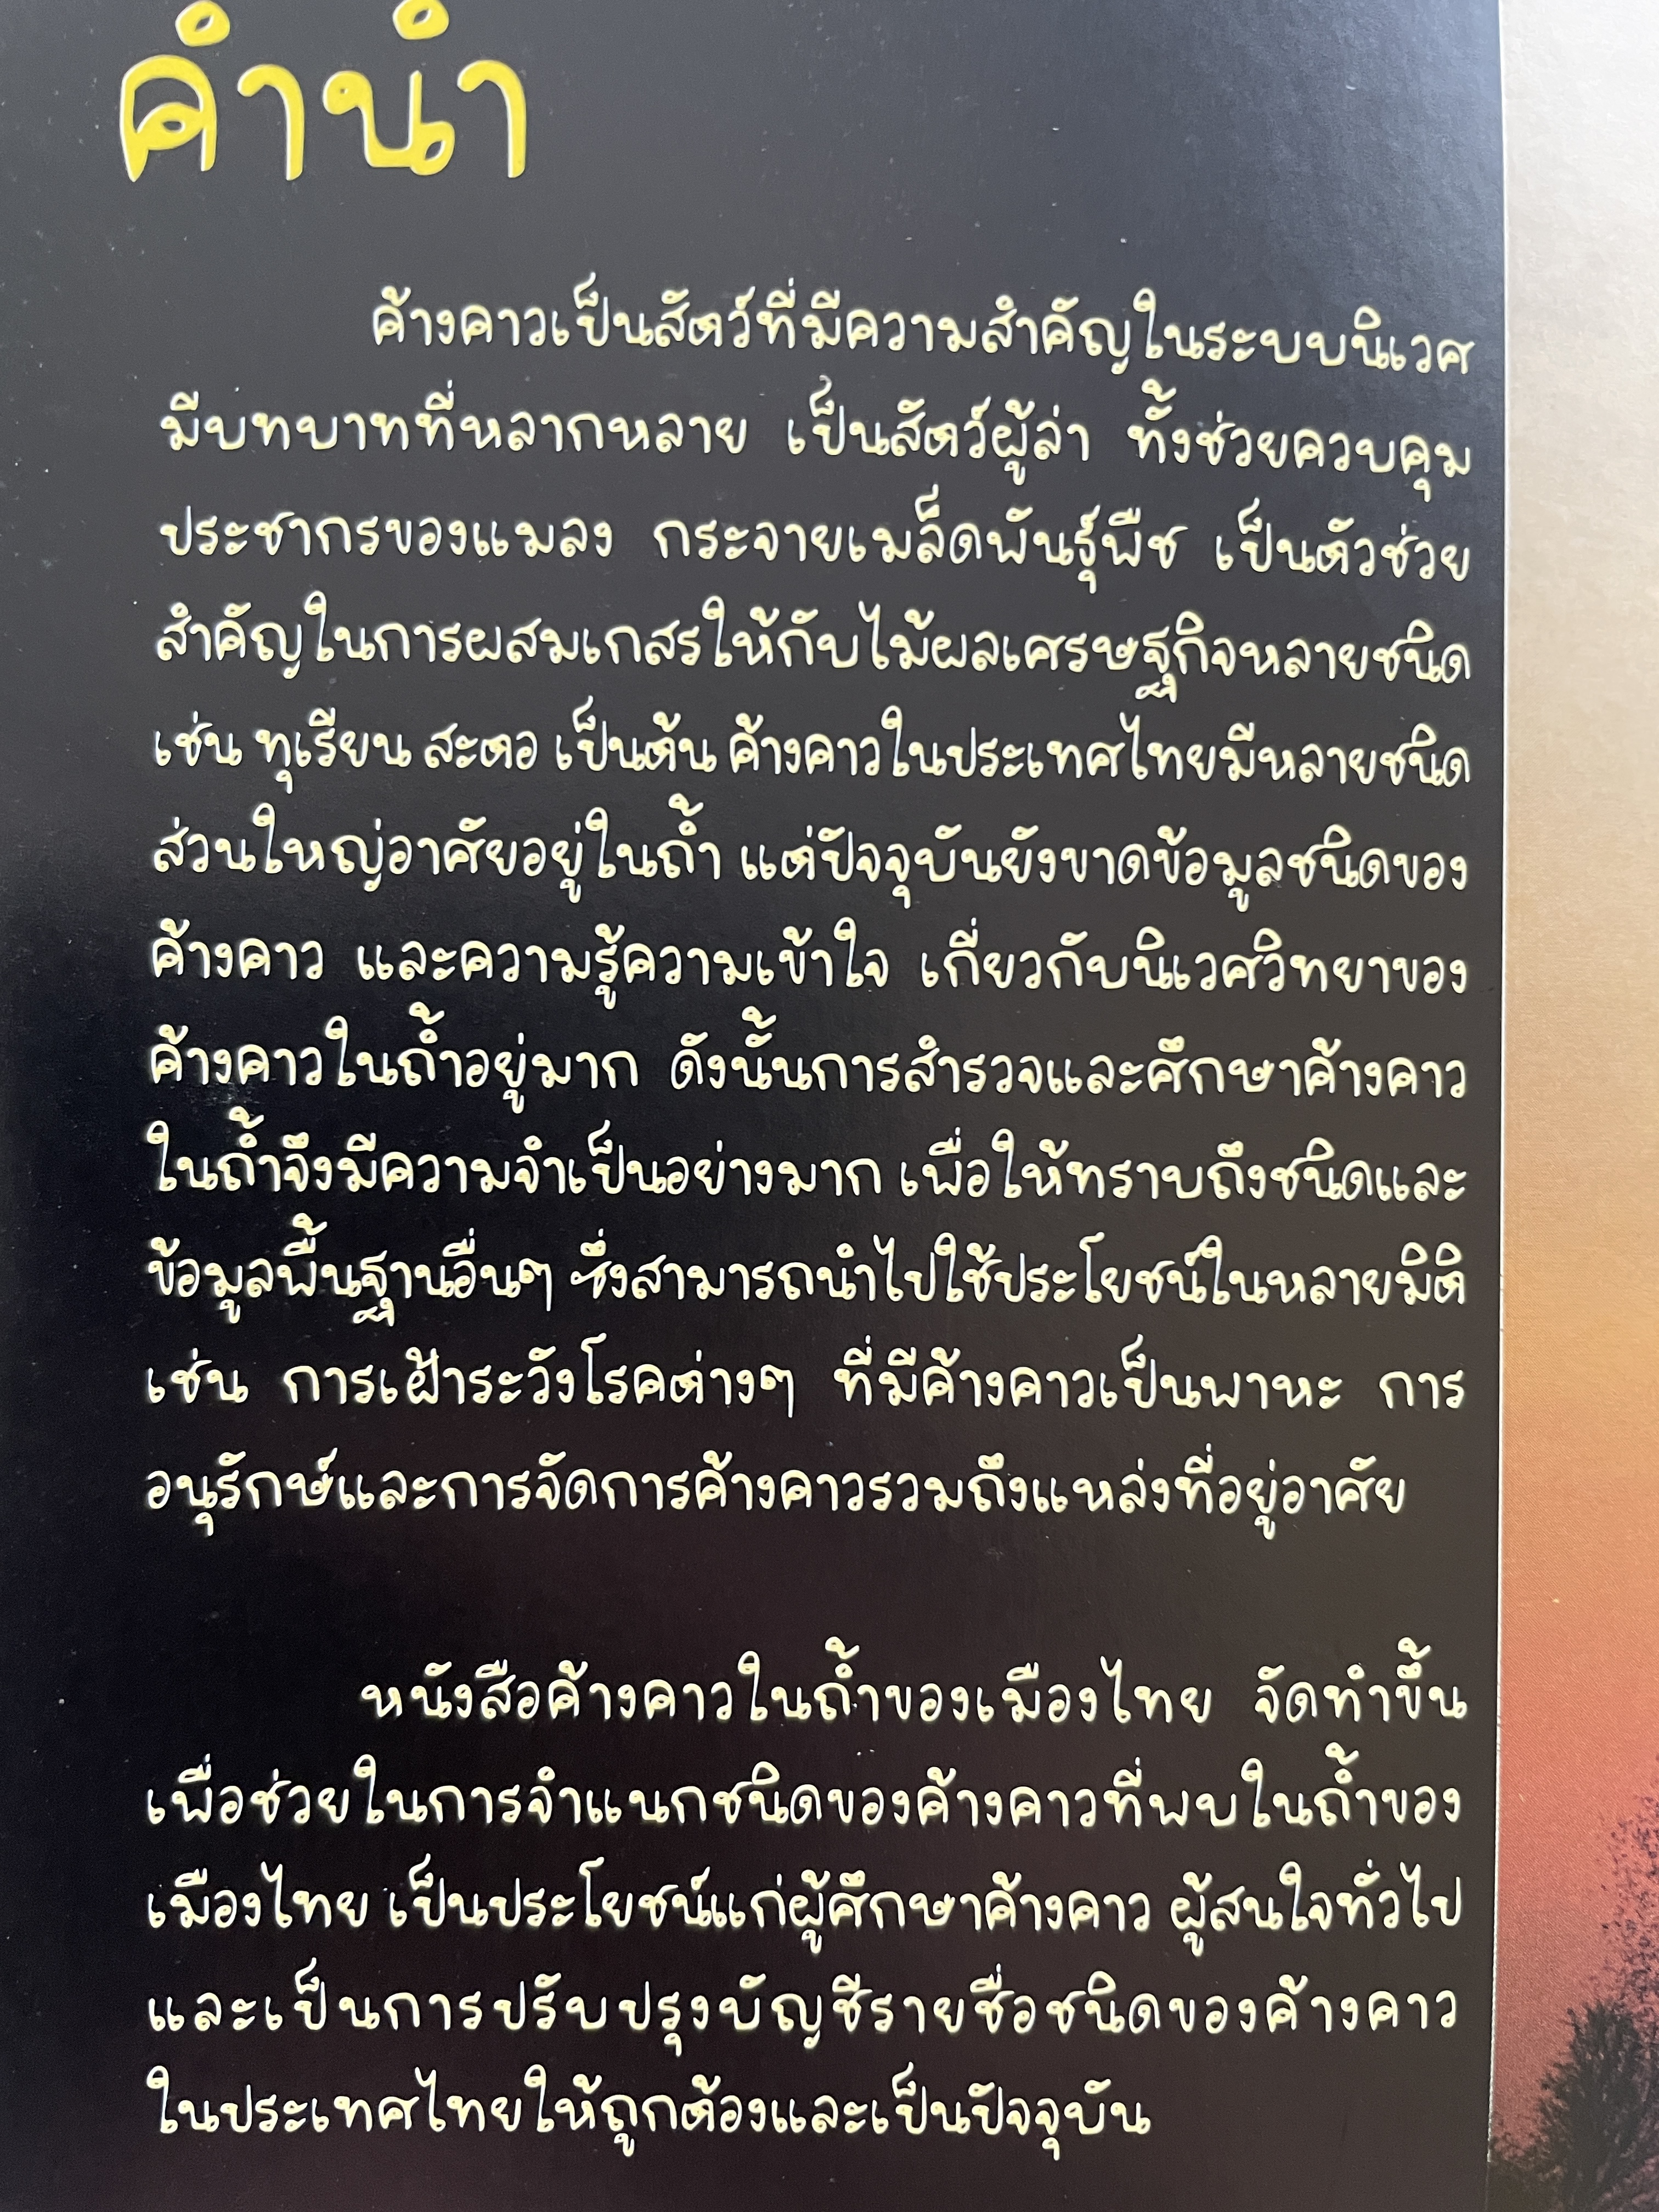 คำนำ
ค้างคาวเป็นสัตว์ที่มีความสำคัญในระบบนิเวศ
มีบทบาทที่หลากหลาย เป็นสัตว์ผู้ล่า ทั้งช่วยควบคุม
ประชากรของแมลง กระจายเมล็ดพันธุ์พืช เป็นตัวช่วย
สำคัญในการผสมเกสรให้กับไม้ผลเศรษฐกิจหลายชนิด
เช่น ทุเรียน สะตอ เป็นต้น ค้างคาวในประเทศไทยมีหลายชนิด
ส่วนใหญ่อาศัยอยู่ในถ้ำ แต่ปัจจุบันยังขาดข้อมูลชนิดของ
ค้างคาว และความรู้ความเข้าใจ เกี่ยวกับนิเวศวิทยาของ
ค้างคาวในถ้ำอยู่มาก ดังนั้นการสำรวจและศึกษาค้างคาว
ในถ้ำจึงมีความจำเป็นอย่างมาก เพื่อให้ทราบถึงชนิดและ
ข้อมูลพื้นฐานอื่นๆ ซึ่งสามารถนำไปใช้ประโยชน์ในหลายมิติ
เช่น การเฝ้าระวังโรคต่างๆ ที่มีค้างคาวเป็นพาหะ การ
อนุรักษ์และการจัดการค้างคาวรวมถึงแหล่งที่อยู่อาศัย
หนังสือค้างคาวในถ้ำของเมืองไทย จัดทำขึ้น
เพื่อช่วยในการจำแนกชนิดของค้างคาวที่พบในถ้ำของ
เมืองไทย เป็นประโยชน์แก่ผู้ศึกษาค้างคาว ผู้สนใจทั่วไป
และเป็นการปรับปรุงบัญชีรายชื่อชนิดของค้างคาว
ในประเทศไทยให้ถูกต้องและเป็นปัจจุบัน